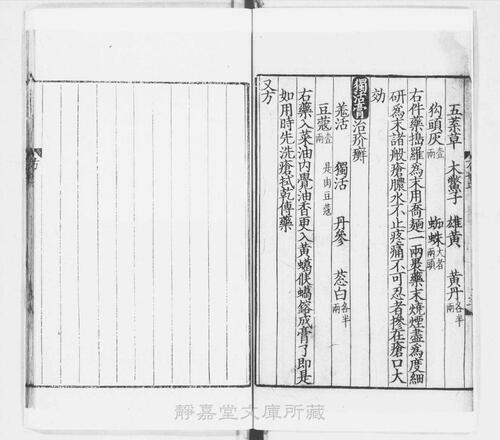 五蔂草 木鱉子 雄黃 黃丹各半兩
狗頭灰壹兩 蜘蛛大者兩頭
右件藥擣羅爲末用喬麵一兩裹藥末燒煙盡爲度細
研爲末諸般瘡膿水不止疼痛不可忍者摻在瘡口大
効
獨活膏治疥癬
羗活 獨活 丹參 葱白各半兩
豆蔻壹兩是肉豆蔻
右藥入菜油內覺油香更入黃蠟候蠟鎔成膏了即是
如用時先洗瘡拭乾傅藥
又方
靜嘉堂文庫所藏